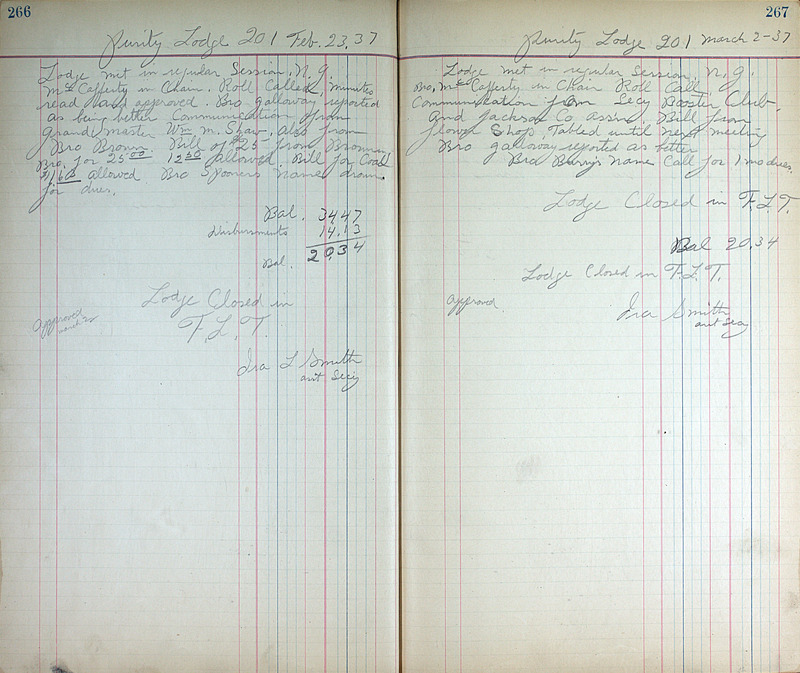 266
Purity Lodge 201 Feb. 23, 37
Lodge met in regular Session, N. G.
Mc Cafferty in Chair. Roll Called, minutes
read and approved. Bro galloway reported
as being better Communication from
Grand master Wm M. Shaw, also from
Bro Brown. Bill of $25 from
Bro. for 25 00 12 50 allowed. Bill for Coal
allowed Bro Spooners name drawn
for dues.
Bal. 34,47
Disbursments 14,13
Bal. 20,34
Lodge Closed in
F. L. T.
Approved
Ira L Smith
asst Secy
267
Purity Lodge 201 march 2-37
Lodge met in regular Session, N. G.
Bro, Mc Cafferty in Chair Roll Call
Communication from Secy Booster Club,
and Jackson Co assn. Bill from
flower Shop, Tabled until next meeting
Bro galloway reported as better
Bro Burry's name Call for 1 mo dues.
Lodge Closed in F. L. T.
Bal 20,34
Lodge Closed in F. L. T.
Approved.
Ira Smith
asst Secy